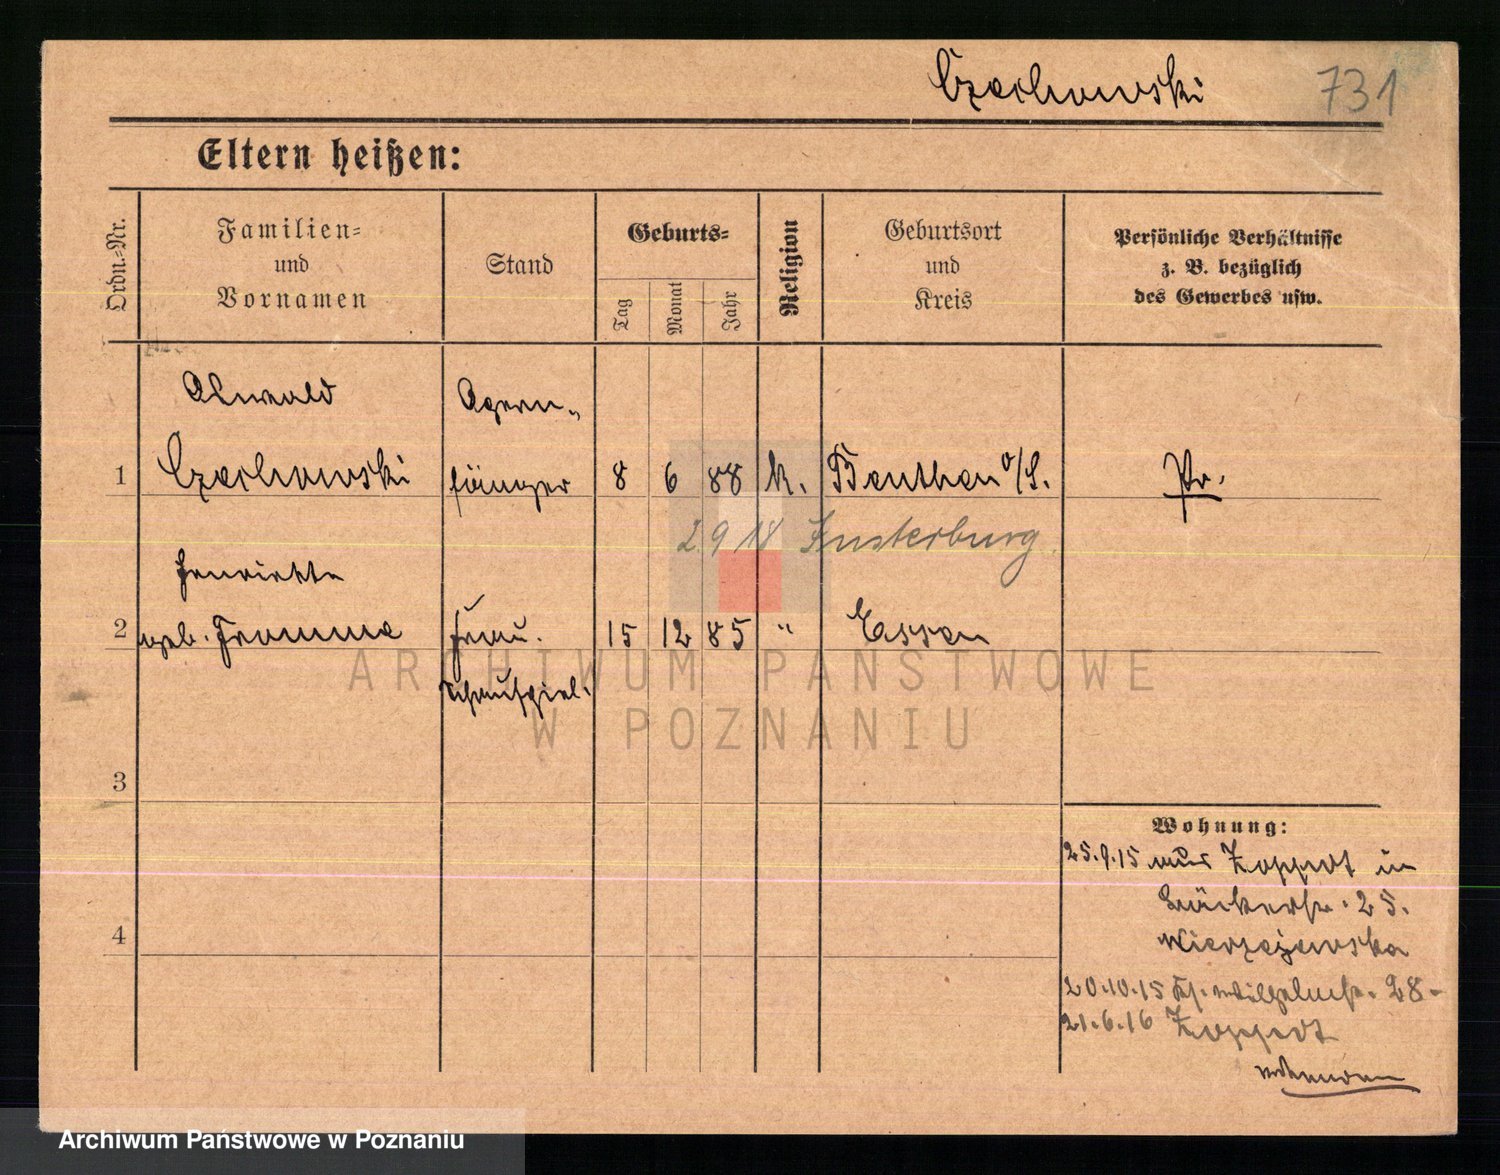 Czechowski 731
Eltern heißen:
Ordn.-Nr.
Familien- und Vornamen
Stand
Geburts-
Tag
Monat
Jahr
Religion
Geburtsort und Kreis
Persönliche Verhältnisse z. B. bezüglich des Gewerbes usw.
1
Czechowski
Opern-
sänger
8 6 88 k. Beuthen O/S. Pr.
2.9.18 Insterburg
2
Henriette
geb. Fromme
Frau.
Schauspiel.
15 12 85 " Essen
3
4
Wohnung:
25.9.15 aus Zoppot in
Bäckerstr. 25.
20.10.15 Wilhelmstr. 28
21.6.16 Zoppot
ARCHIWUM PAŃSTWOWE
W POZNANIU
Archiwum Państwowe w Poznaniu